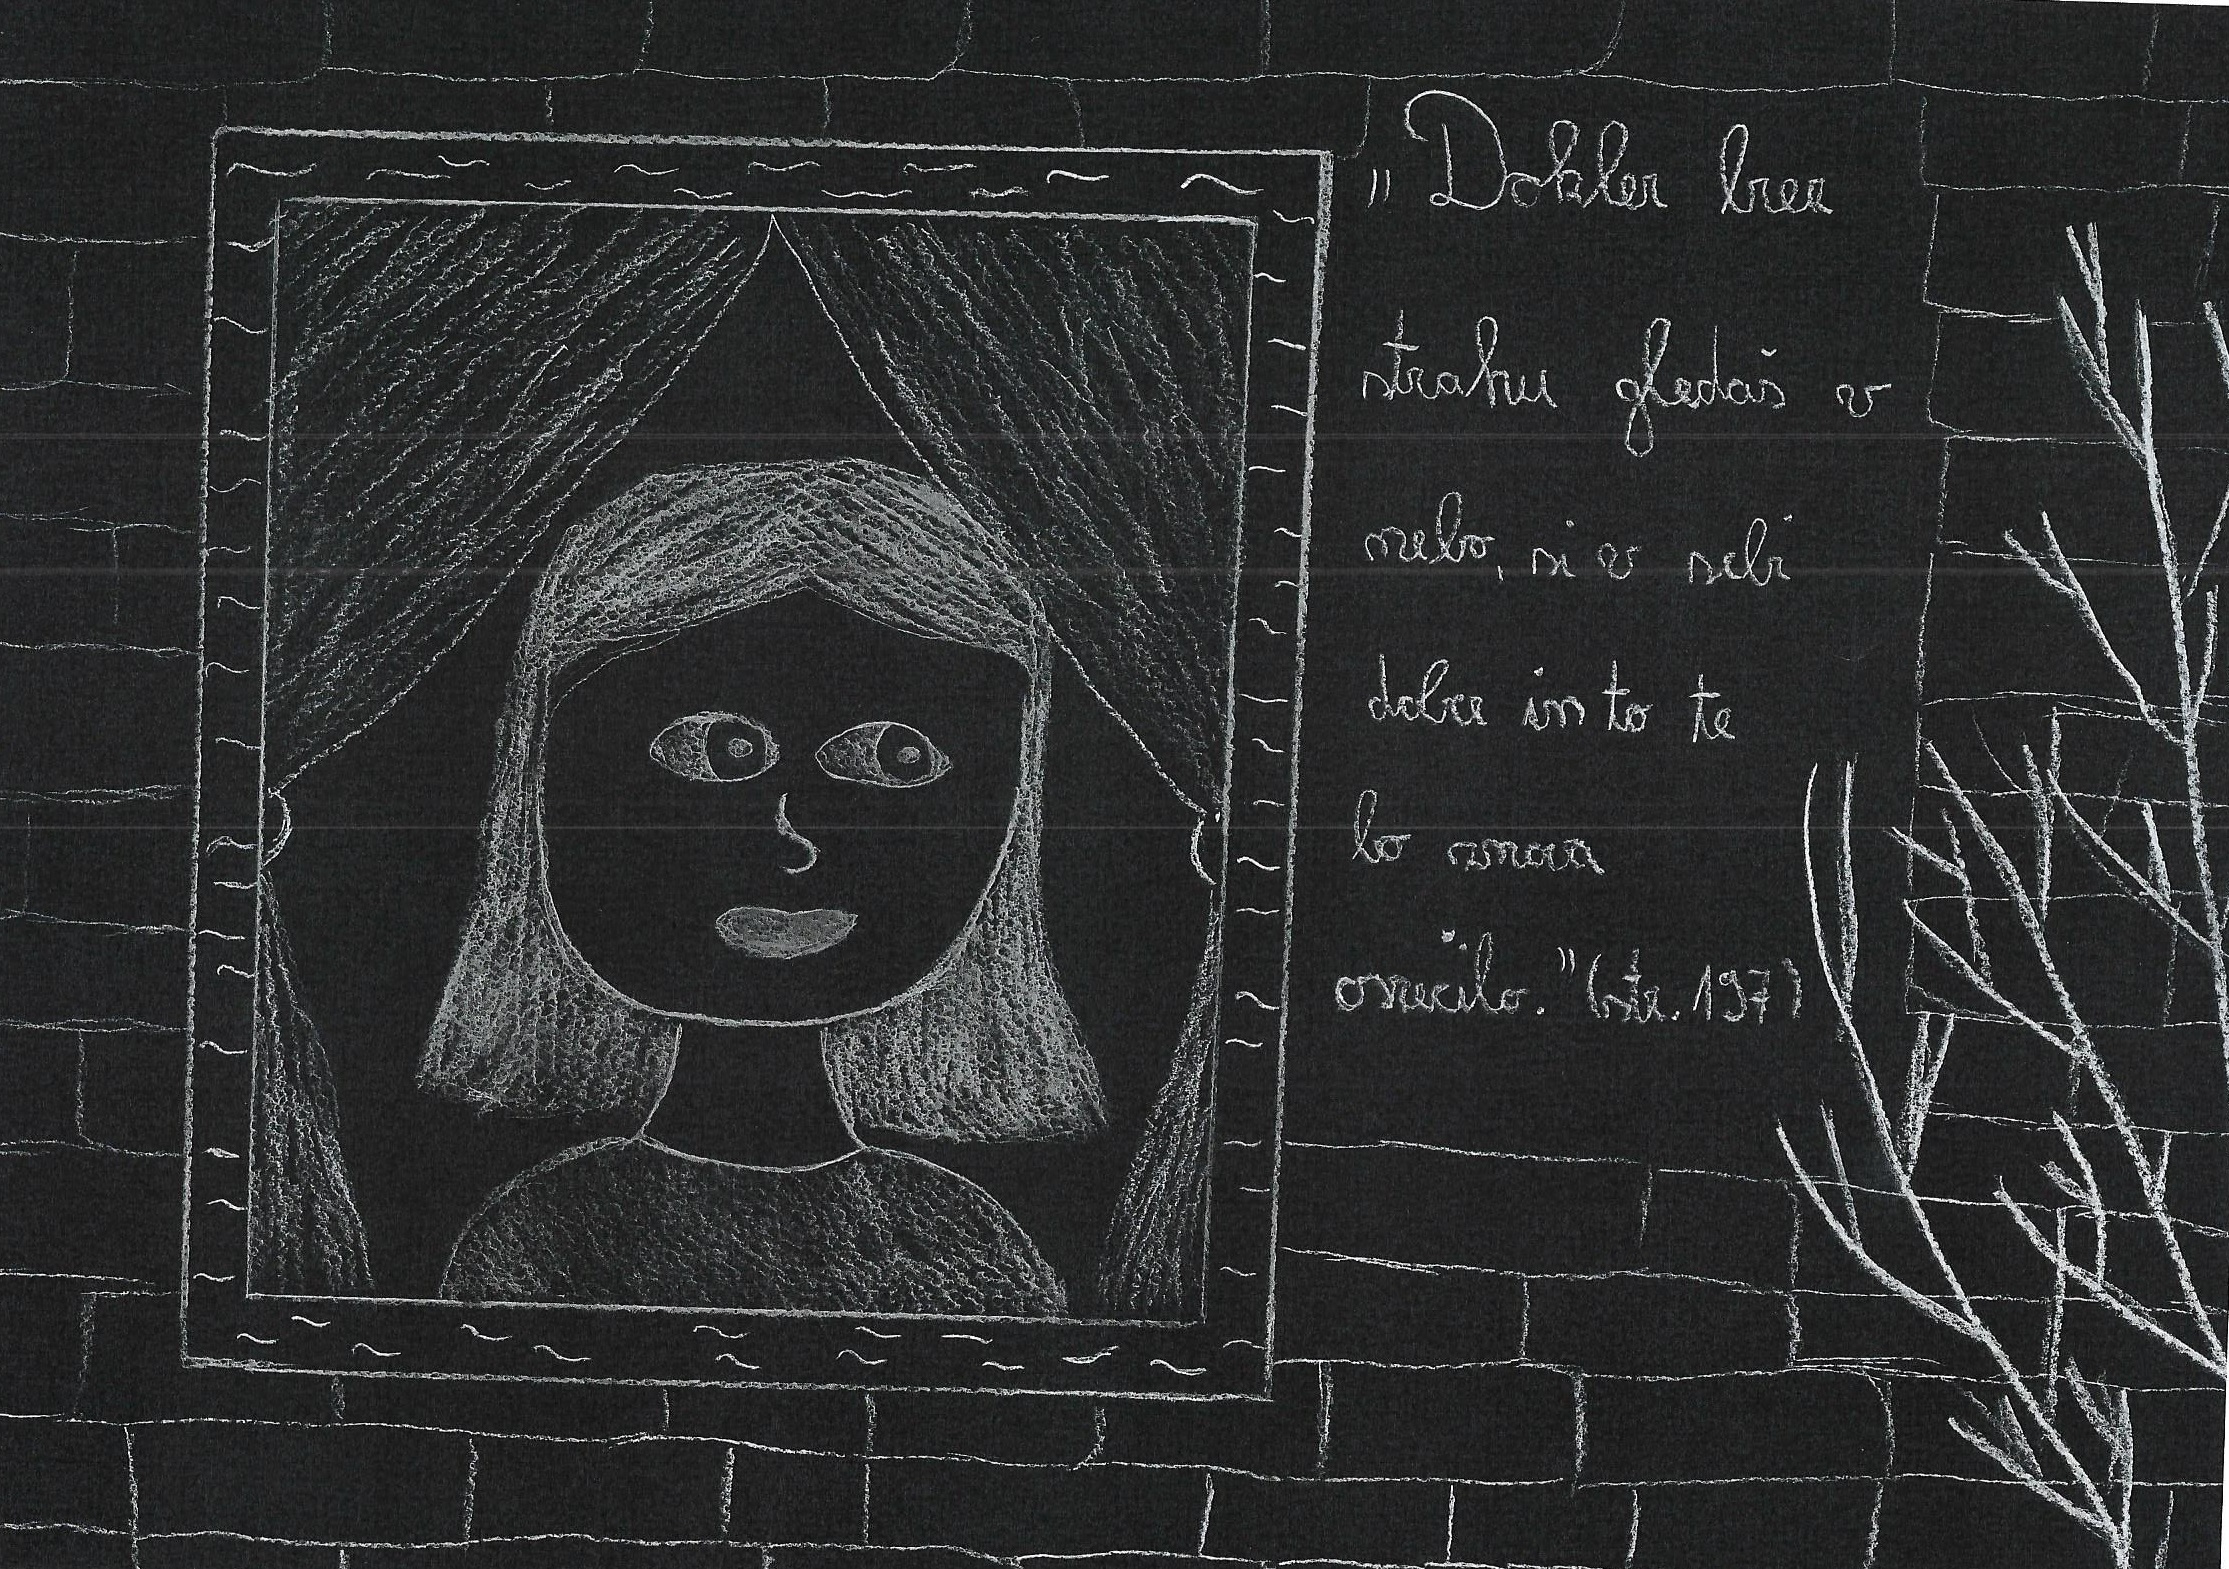 „Dokler brez
strahu gledaš v
nebo, si v sebi
dober in to te
bo znova
osrečilo.” (str. 197)